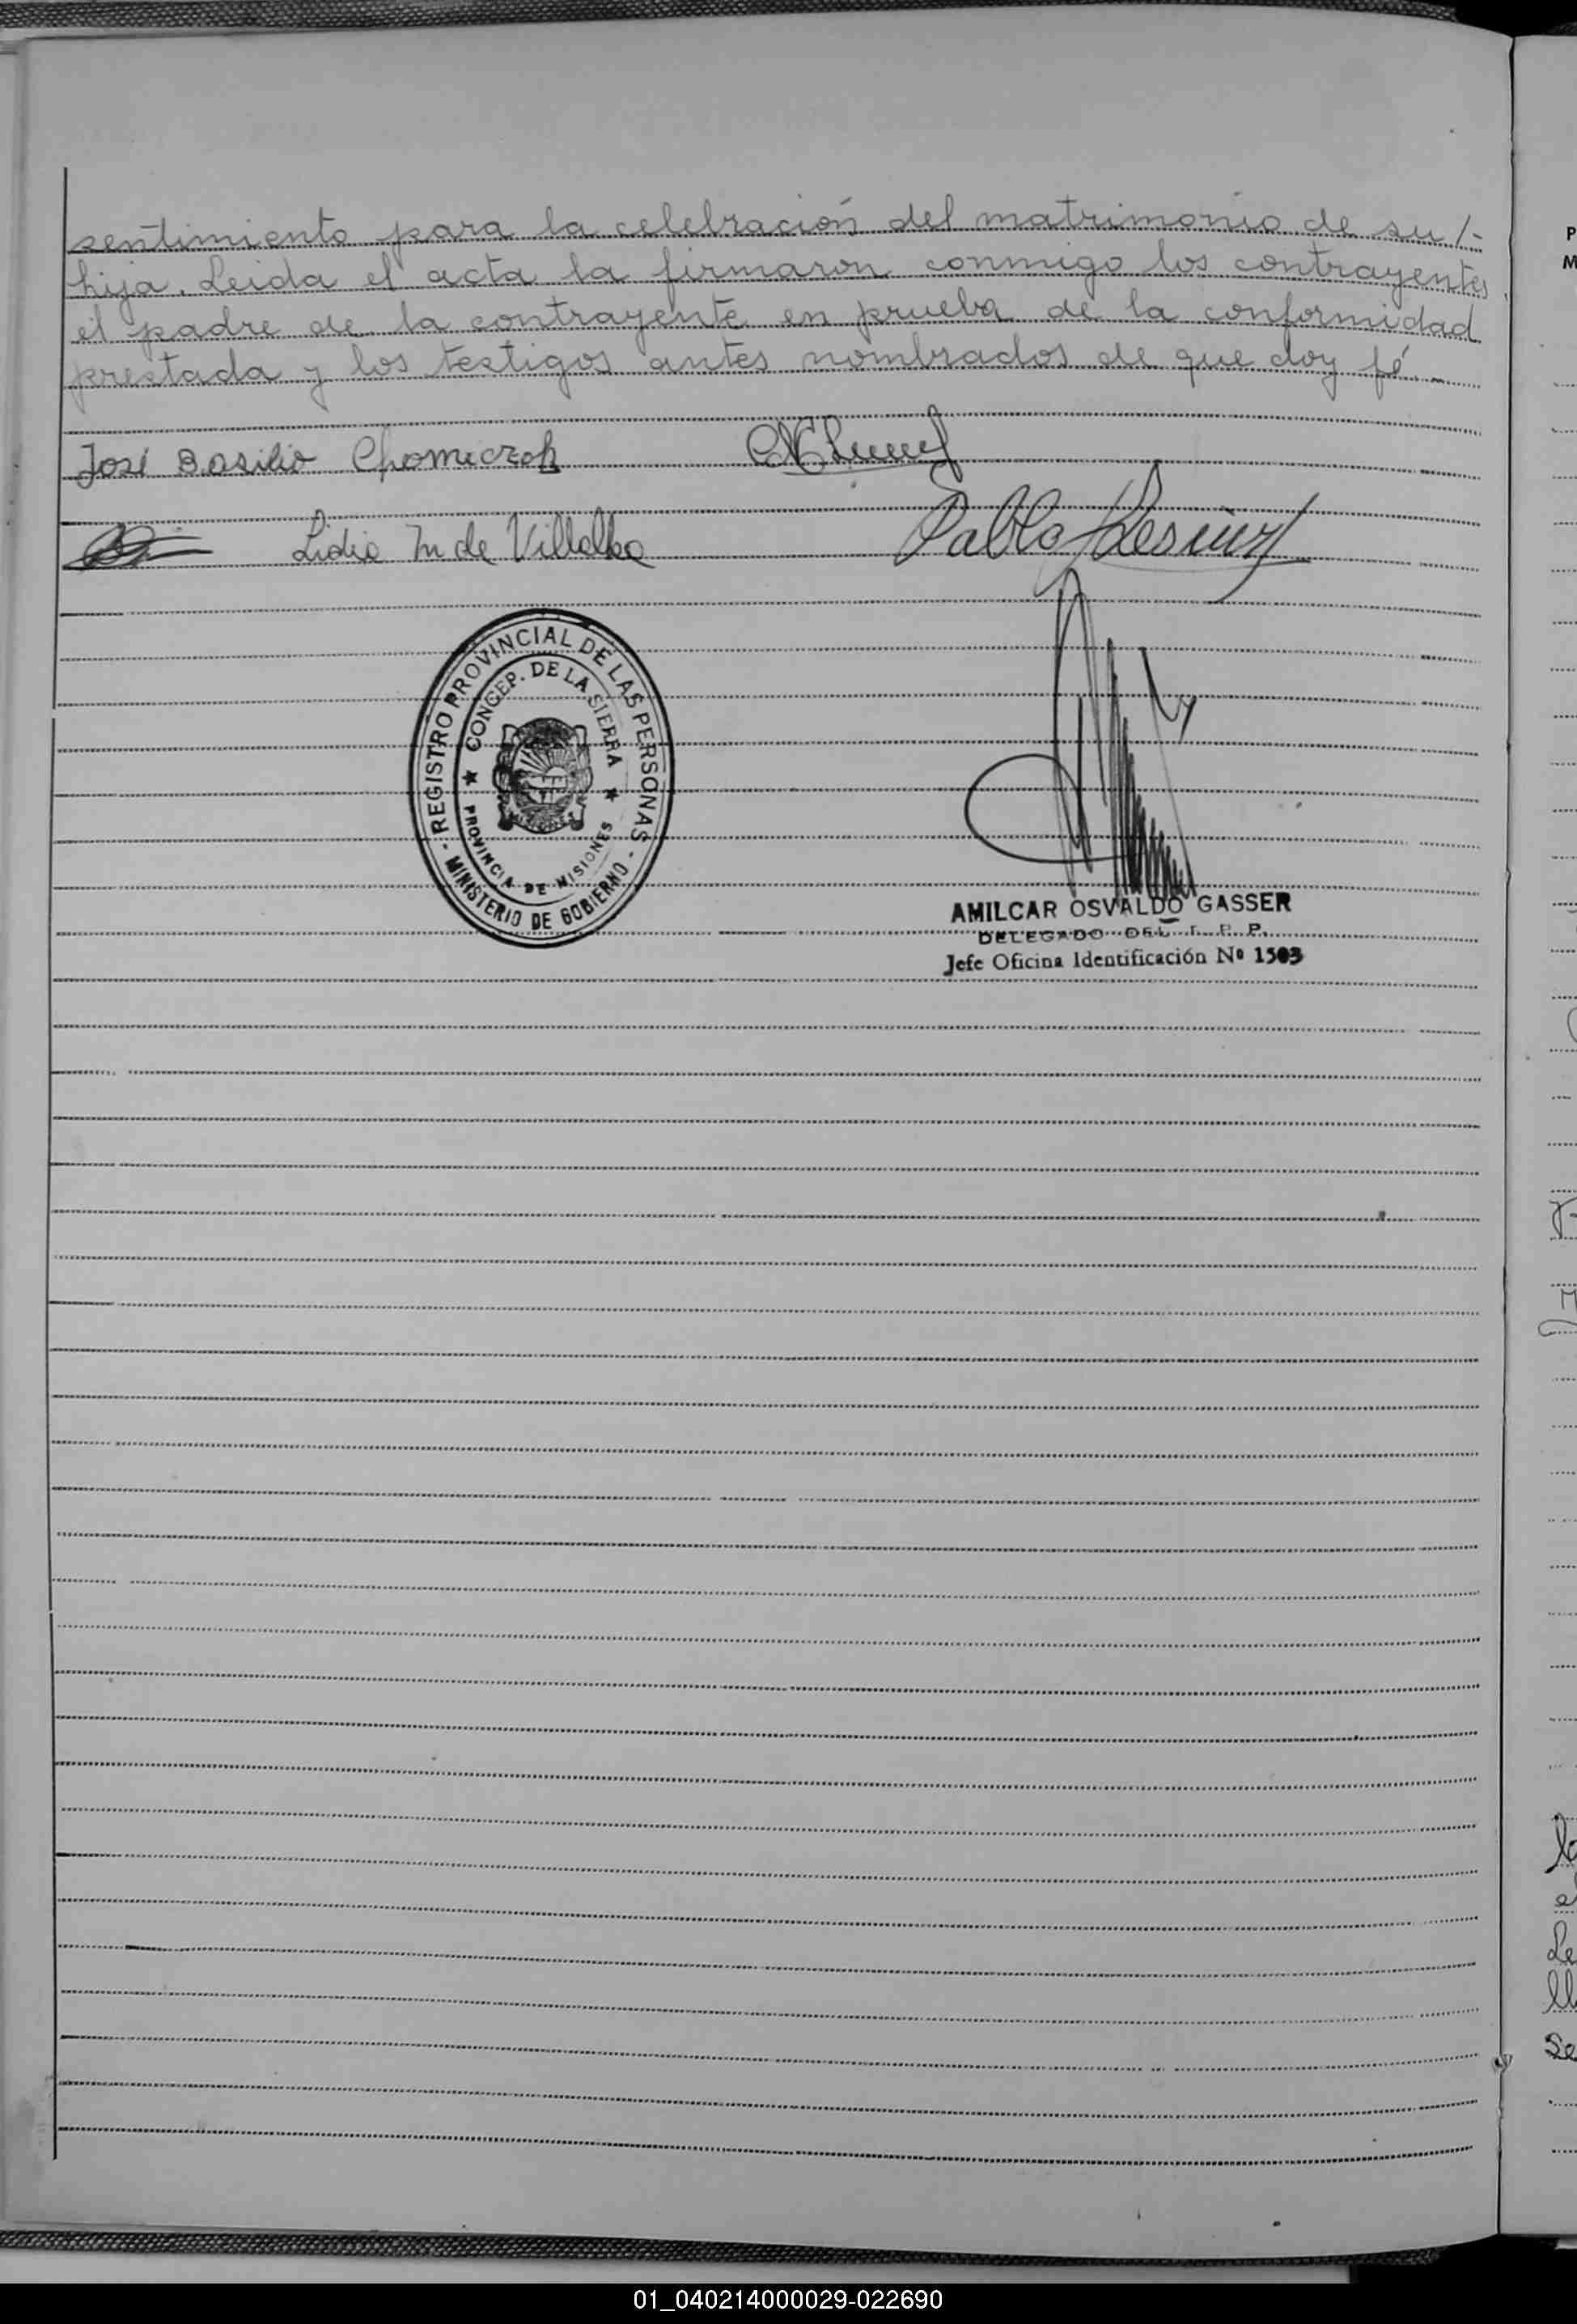 sentimiento para la celebración del matrimonio de su/-
hija. Leida el acta la firmaron conmigo los contrayentes,
el padre de la contrayente en prueba de la conformidad
prestada y los testigos antes nombrados de que doy fé.-
José Basilio Chomiczok
Lidia M de Villalba
Pablo
REGISTRO PROVINCIAL DE LAS PERSONAS
- MINISTERIO DE GOBIERNO -
★ CONCEP. DE LA SIERRA ★
PROVINCIA DE MISIONES
AMILCAR OSVALDO GASSER
DELEGADO DEL
Jefe Oficina Identificación Nº 1503
01_040214000029-022690